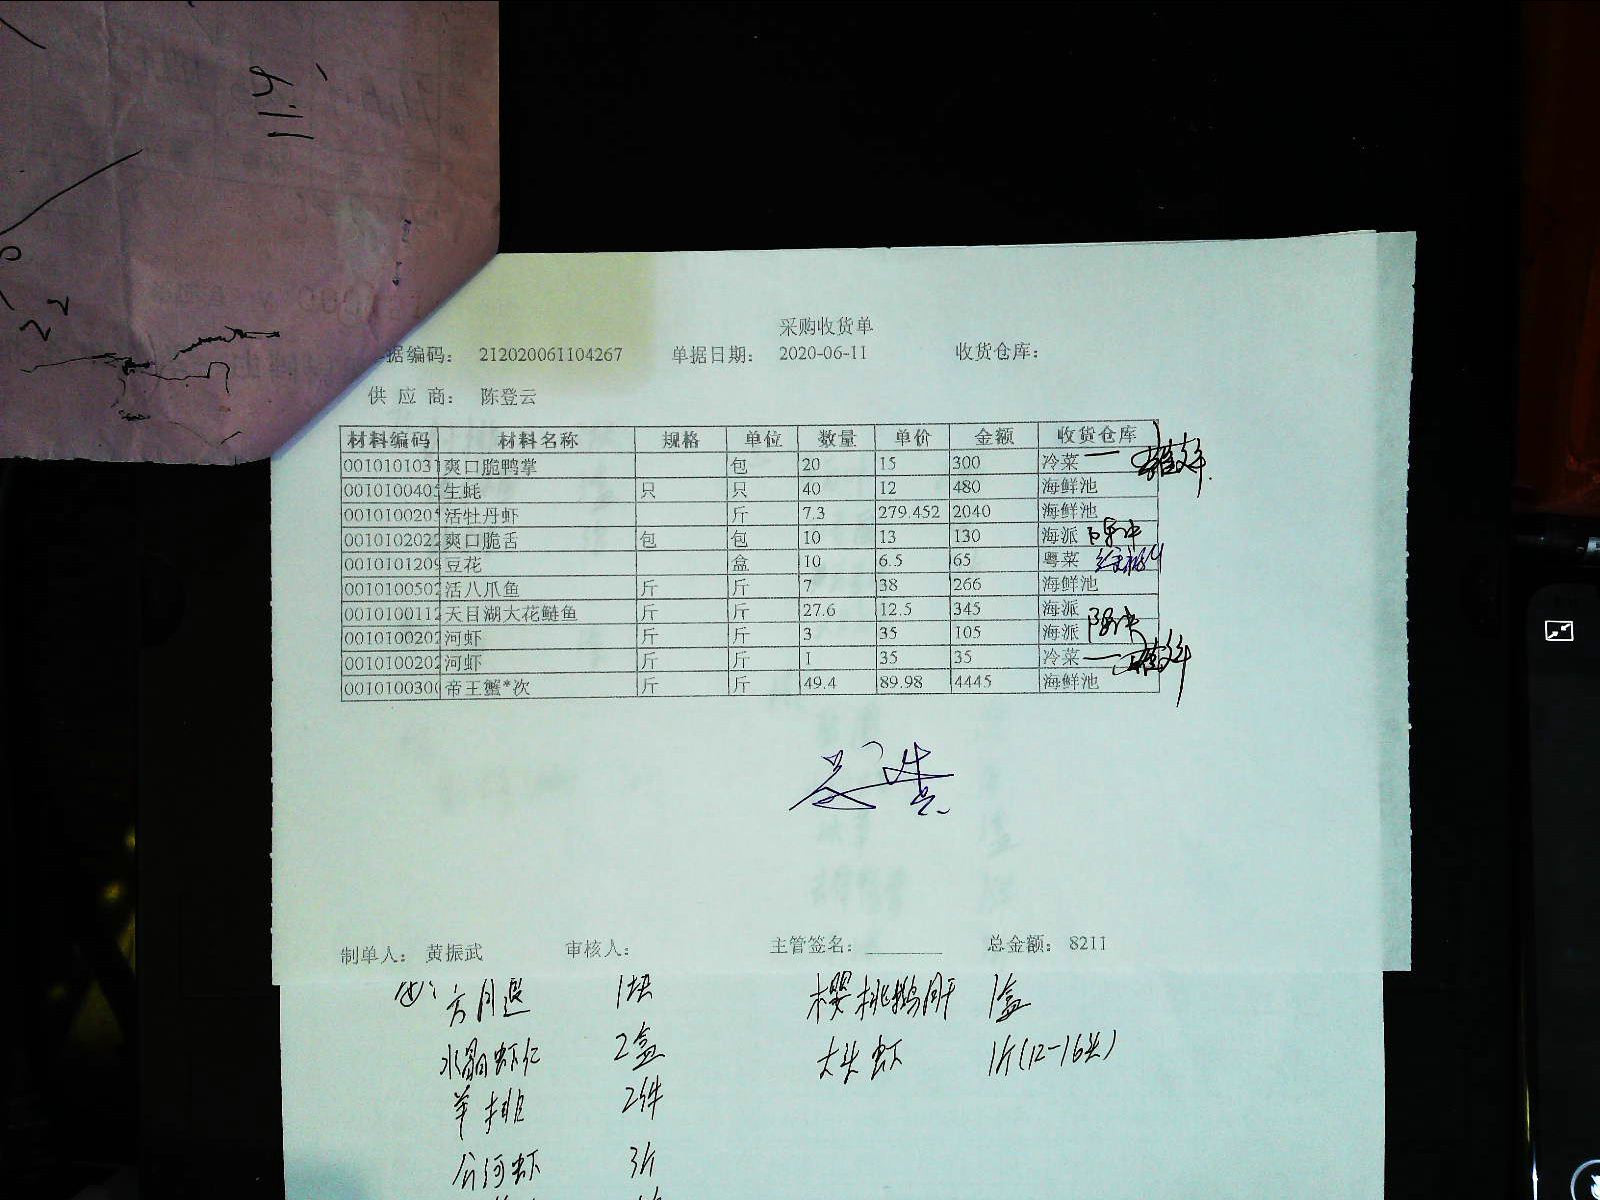 采购收货单
据编码： 212020061104267 单据日期： 2020-06-11 收货仓库：
供 应 商： 陈登云
材料编码 材料名称 规格 单位 数量 单价 金额 收货仓库
0010101031 爽口脆鸭掌 包 20 15 300 冷菜
001010040 生蚝 只 只 40 12 480 海鲜池
001010020 活牡丹虾 斤 7.3 279.452 2040 海鲜池
0010102022 爽口脆舌 包 包 10 13 130 海派
001010120 豆花 盒 10 6.5 65 粤菜
001010050 活八爪鱼 斤 斤 7 38 266 海鲜池
0010100112 天目湖大花鲢鱼 斤 斤 27.6 12.5 345 海派
001010020 河虾 斤 斤 3 35 105 海派
001010020 河虾 斤 斤 1 35 35 冷菜
001010030 帝王蟹*次 斤 斤 49.4 89.98 4445 海鲜池
制单人： 黄振武 审核人： 主管签名： 总金额： 8211
1块 樱桃鹅肝 1盒
水晶虾仁 2盒 大头虾 1斤(12-16头)
羊排 2件
河虾 3斤